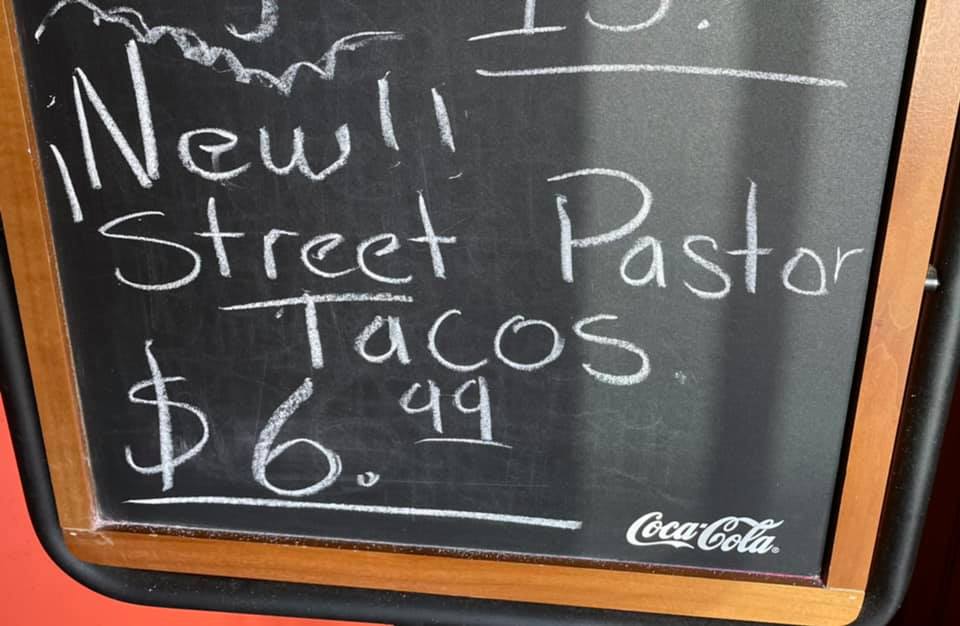 New!!
Street Pastor
Tacos
$6.99
Coca-Cola